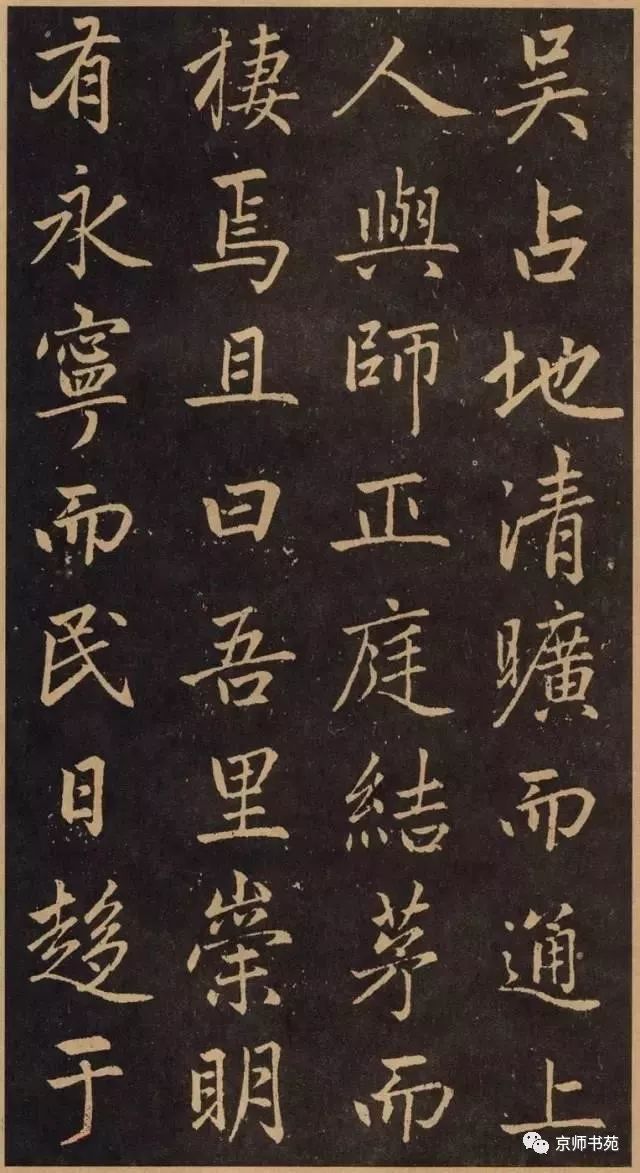 吴占地清曠而通上
人與師正庭結茅而
棲焉且曰吾里崇明
有永寧而民日趍于
京师书苑